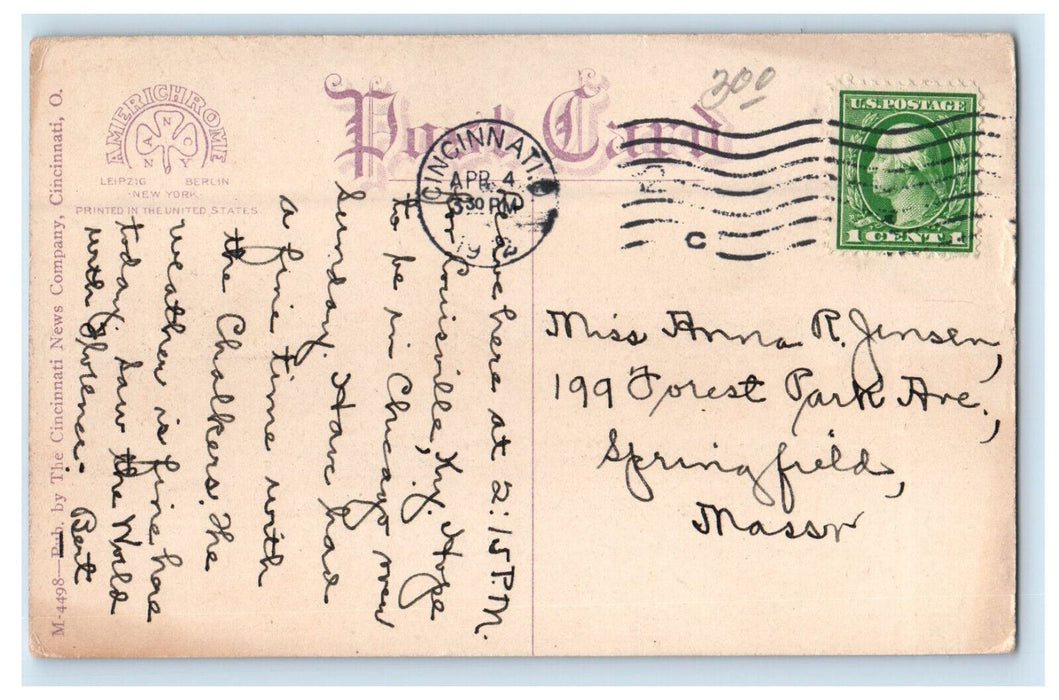 AMERICHRONE
ANNCo
LEIPZIG BERLIN
-NEW YORK-
PRINTED IN THE UNITED STATES
Post Card
300
CINCINNATI, O.
APR 4
3 30 PM
19
C
U.S. POSTAGE
1 CENT 1
M-4498—Pub. by The Cincinnati News Company, Cincinnati, O.
Leave here at 2:15 P.M.
for Louisville, Ky. Hope
to be in Chicago over
Sunday. Have had
a fine time with
the Chalkers. The
weather is fine here
today. Saw the World
with Florence.
Bert
Miss Anna R. Jensen,
199 Forest Park Ave.,
Springfield,
Mass